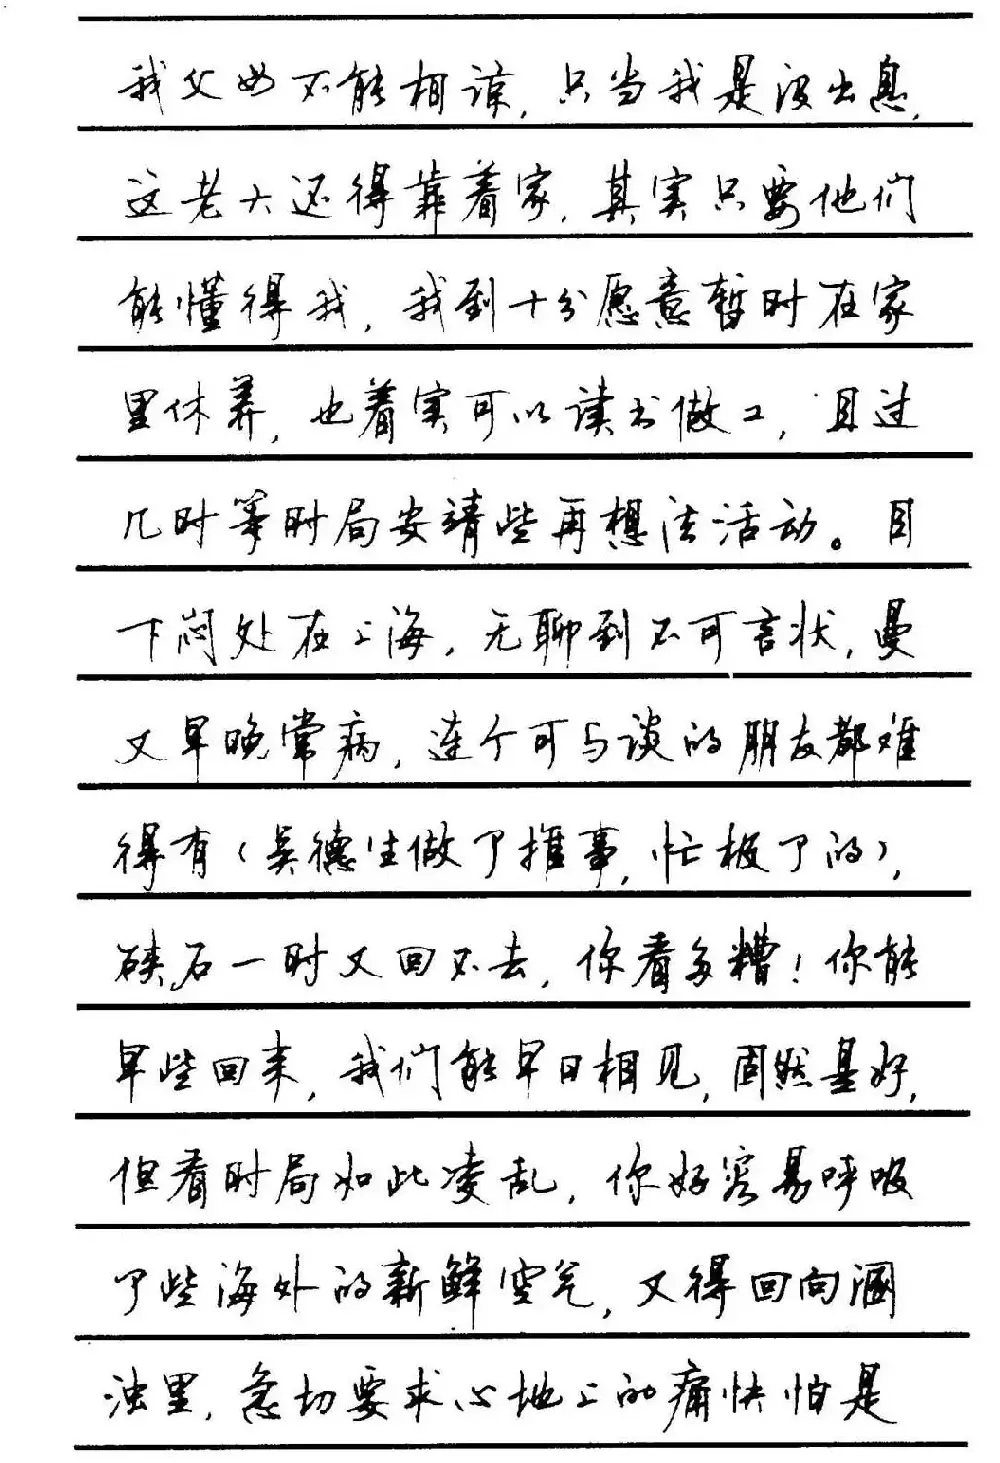 我父母不能相谅，只当我是没出息，
这老大还得靠着家，其实只要他们
能懂得我，我到十分愿意暂时在家
里休养，也着实可以读书做工，且过
几时等时局安靖些再想法活动。目
下闷处在上海，无聊到不可言状，曼
又早晚常病，连个可与谈的朋友都难
得有（吴德生做了推事，忙极了的），
硖石一时又回不去，你看多糟！你能
早些回来，我们能早日相见，固然是好，
但看时局如此凌乱，你好容易呼吸
了些海外的新鲜空气，又得回向溷
浊里，急切要求心地上的痛快怕是